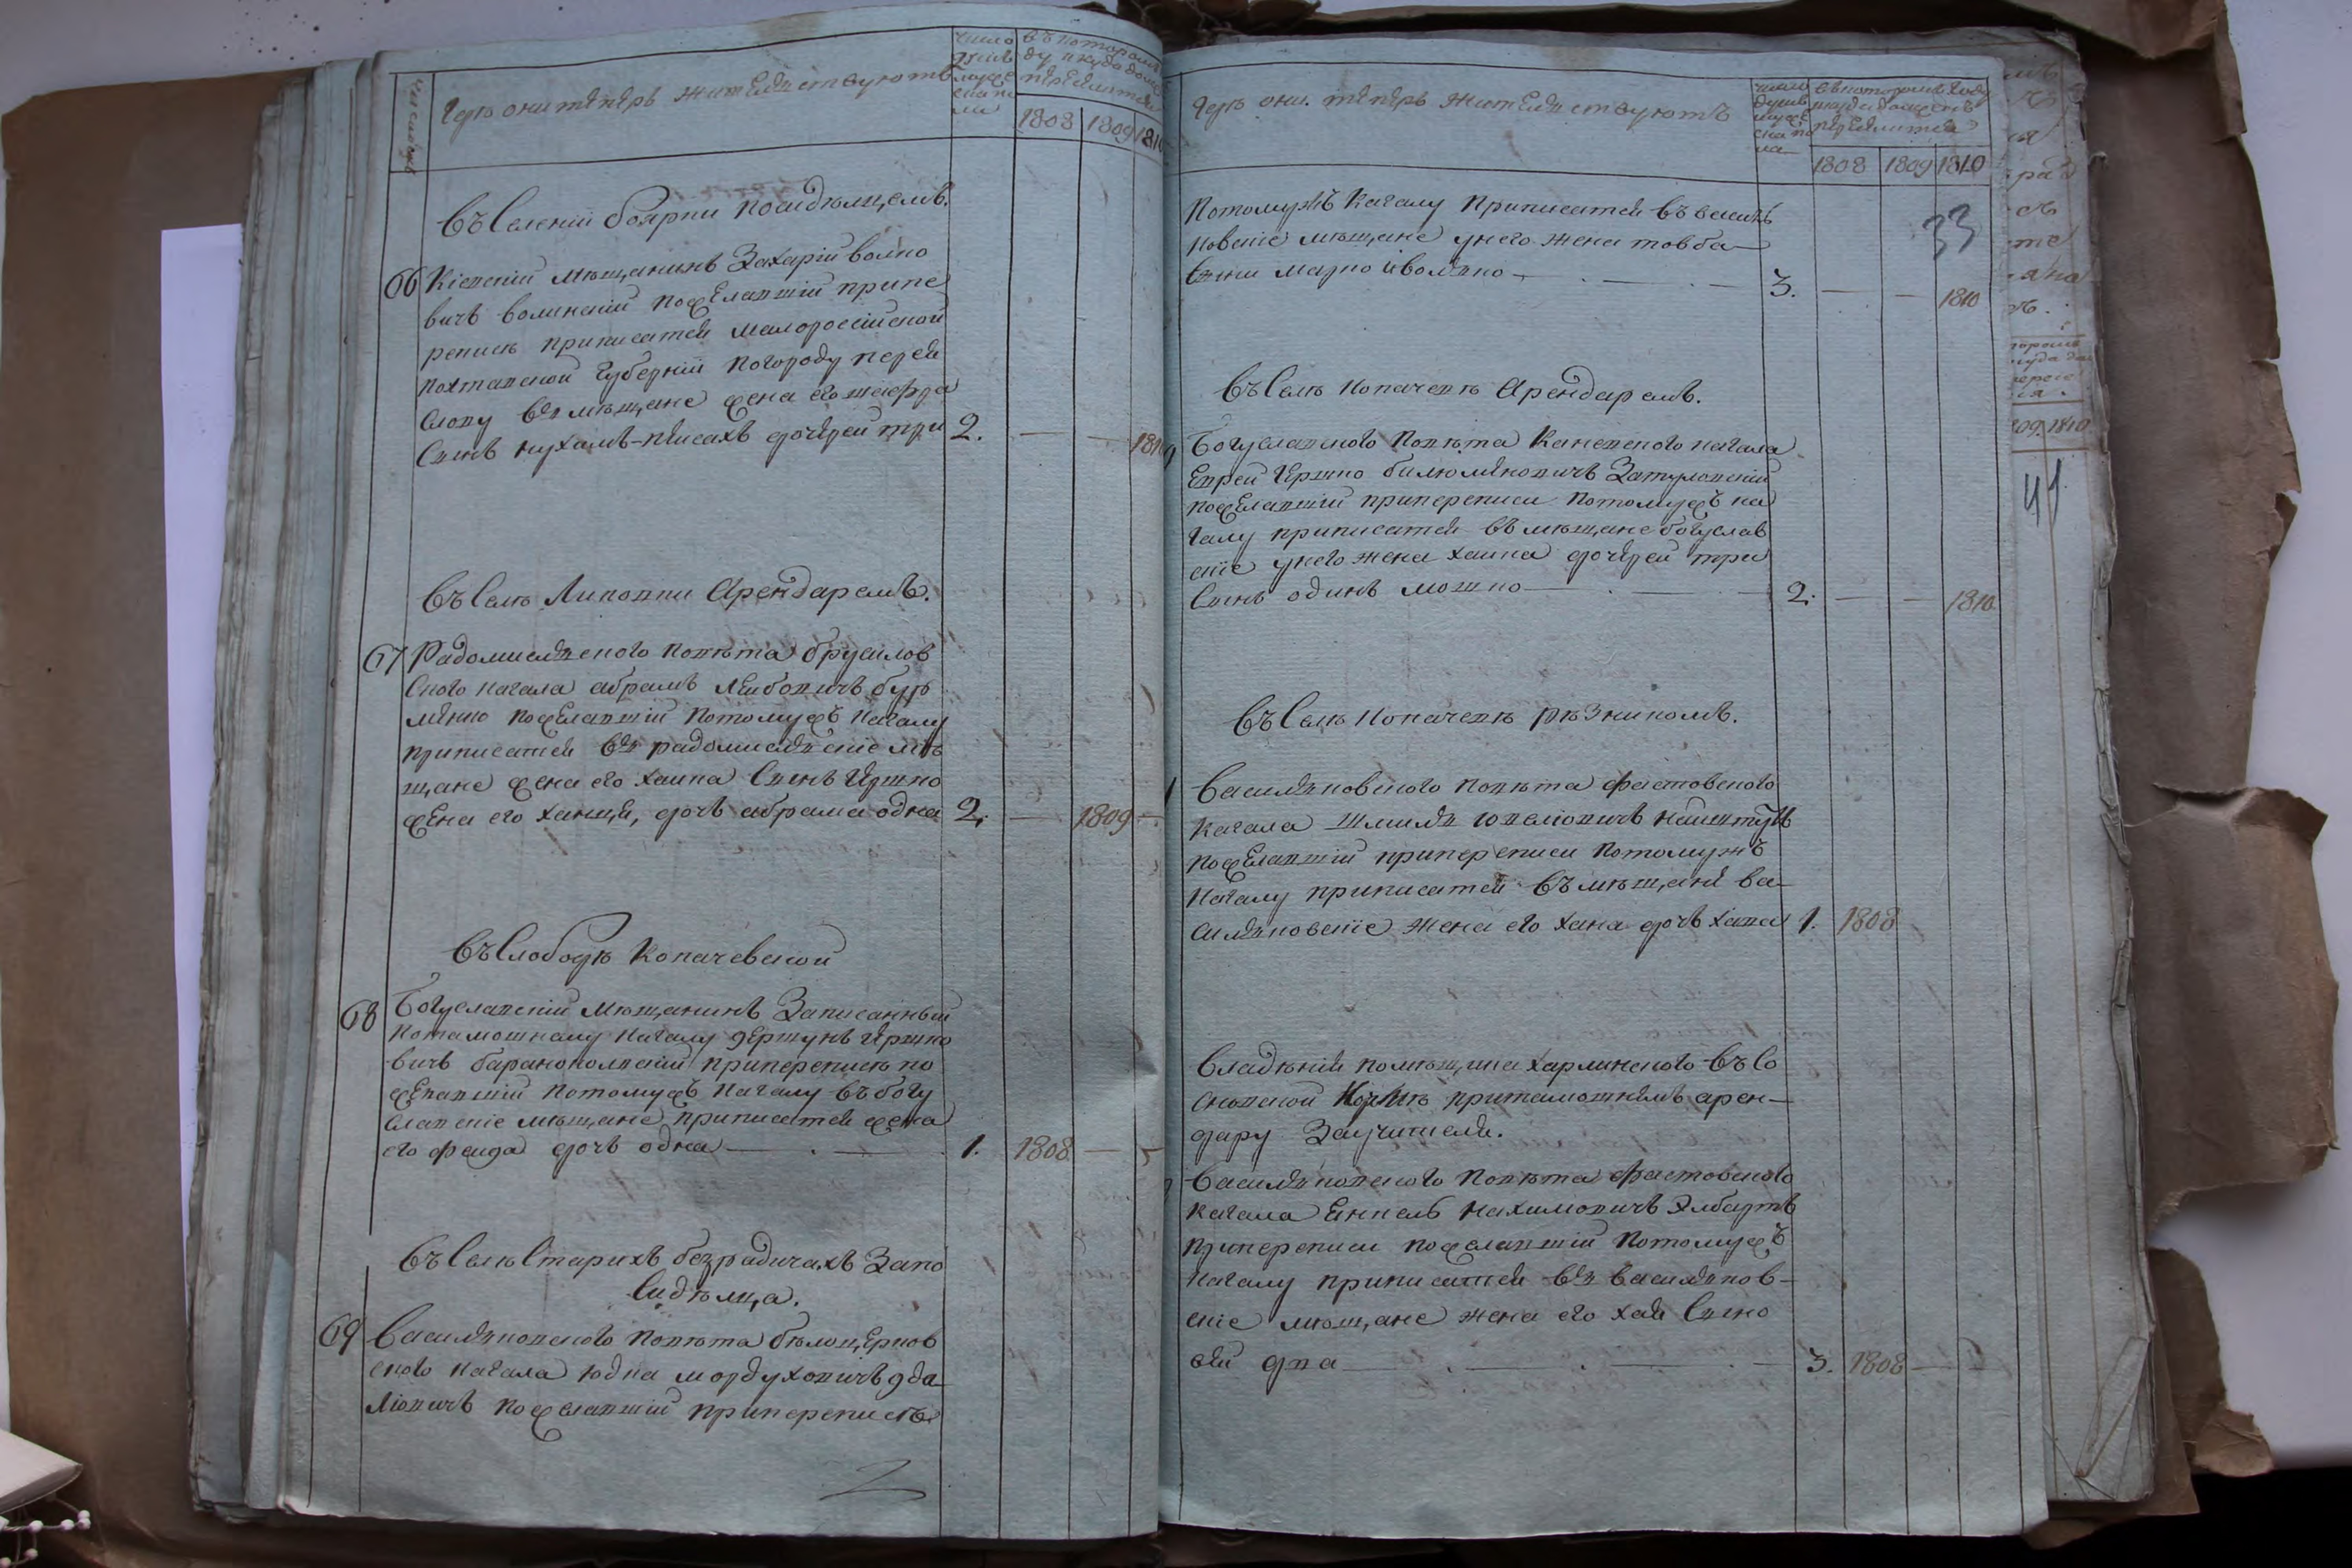 Где они теперь жителствуютъ
число душъ мужеска пола
въ котором году и куда должен переити
1808 1809 1810
Въ селении Боярки посидѣлцемъ.
66 Кіевскій мѣщанинъ Захарій волко
вичъ волинскій пожелавшій при пе
реписи приписатся Малоросійской
Полтавской губерніи по городу перея
славу въ мѣщане жена его
синъ нухимъ-пейсахъ дочерей три 2. — — 1810
Въ селѣ Липовки Арендаремъ.
67 Радомислского повѣта брусилов
ского кагала абрамъ Лейбовичъ бур
пожелавшій потомужъ кагалу
приписатся въ радомислские мѣ
щане жена его хаина синъ Иршко
жена его ханця, дочъ абрама одна 2. — 1809 —
Въ слободѣ Копачевской
68 Богуславский мѣщанинъ записанный
по тамошнему кагалу гершунъ Иршко
вичъ баранополский при переписѣ по
желавшій потомужъ кагалу въ богу
славские мѣщане приписатся жена
его фейда дочъ одна — . — 1. 1808 —
Въ селѣ Старихъ безрадичахъ за по
сидѣлца.
69 Василковского повѣта бѣлоцерков
ского кагала юдка мордуховичъ
пожелавшій при переписѣ
Где они теперь жителствуютъ
число душъ мужеска пола
въ котором году и куда должен переитить
1808 1809 1810
33
потомужъ кагалу приписатся въ василь
ковские мѣщане у него жена товба —
сини марко и волко — . — . — 3. — — 1810
Въ селѣ Копачевѣ Арендаремъ.
Богуславского повѣта каневского кагала
еврей Иршко Затуловский
пожелавший при переписи потомужъ ка
галу приписатся въ мѣщане богуслав
ские у него жена хаина дочерей три
синъ одинъ мошко — . — 2. — — 1810
Въ селѣ Копачевѣ рѣзникомъ.
Василковского повѣта фастовского
кагала шмиля
пожелавший при переписи потомужъ
кагалу приписатся въ мѣщане ва-
силковские жена его хана дочъ хава 1. 1808
Владѣния помѣщика харлинского въ со
сновской при тамошнемъ арен-
дару за учителя.
Василковского повѣта фастовского
кагала янкель нахимовичъ элбертъ
при переписи пожелавший потомужъ
кагалу приписатся въ василков-
ские мѣщане жена его хая сино
вей два — . — . — 3. 1808 — —
1810
41